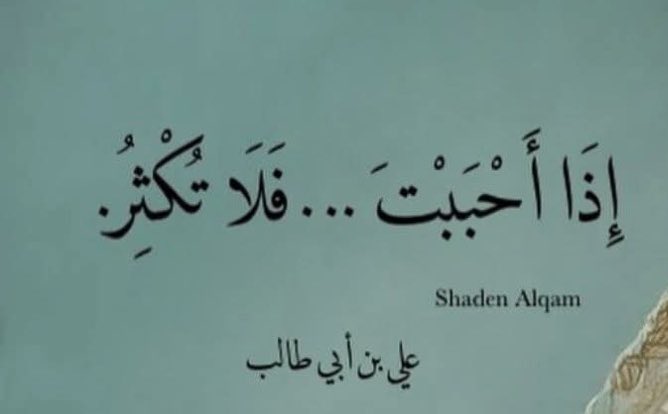 إِذَا أَحْبَبْتَ ... فَلَا تُكْثِرُ.
Shaden Alqam
علي بن أبي طالب